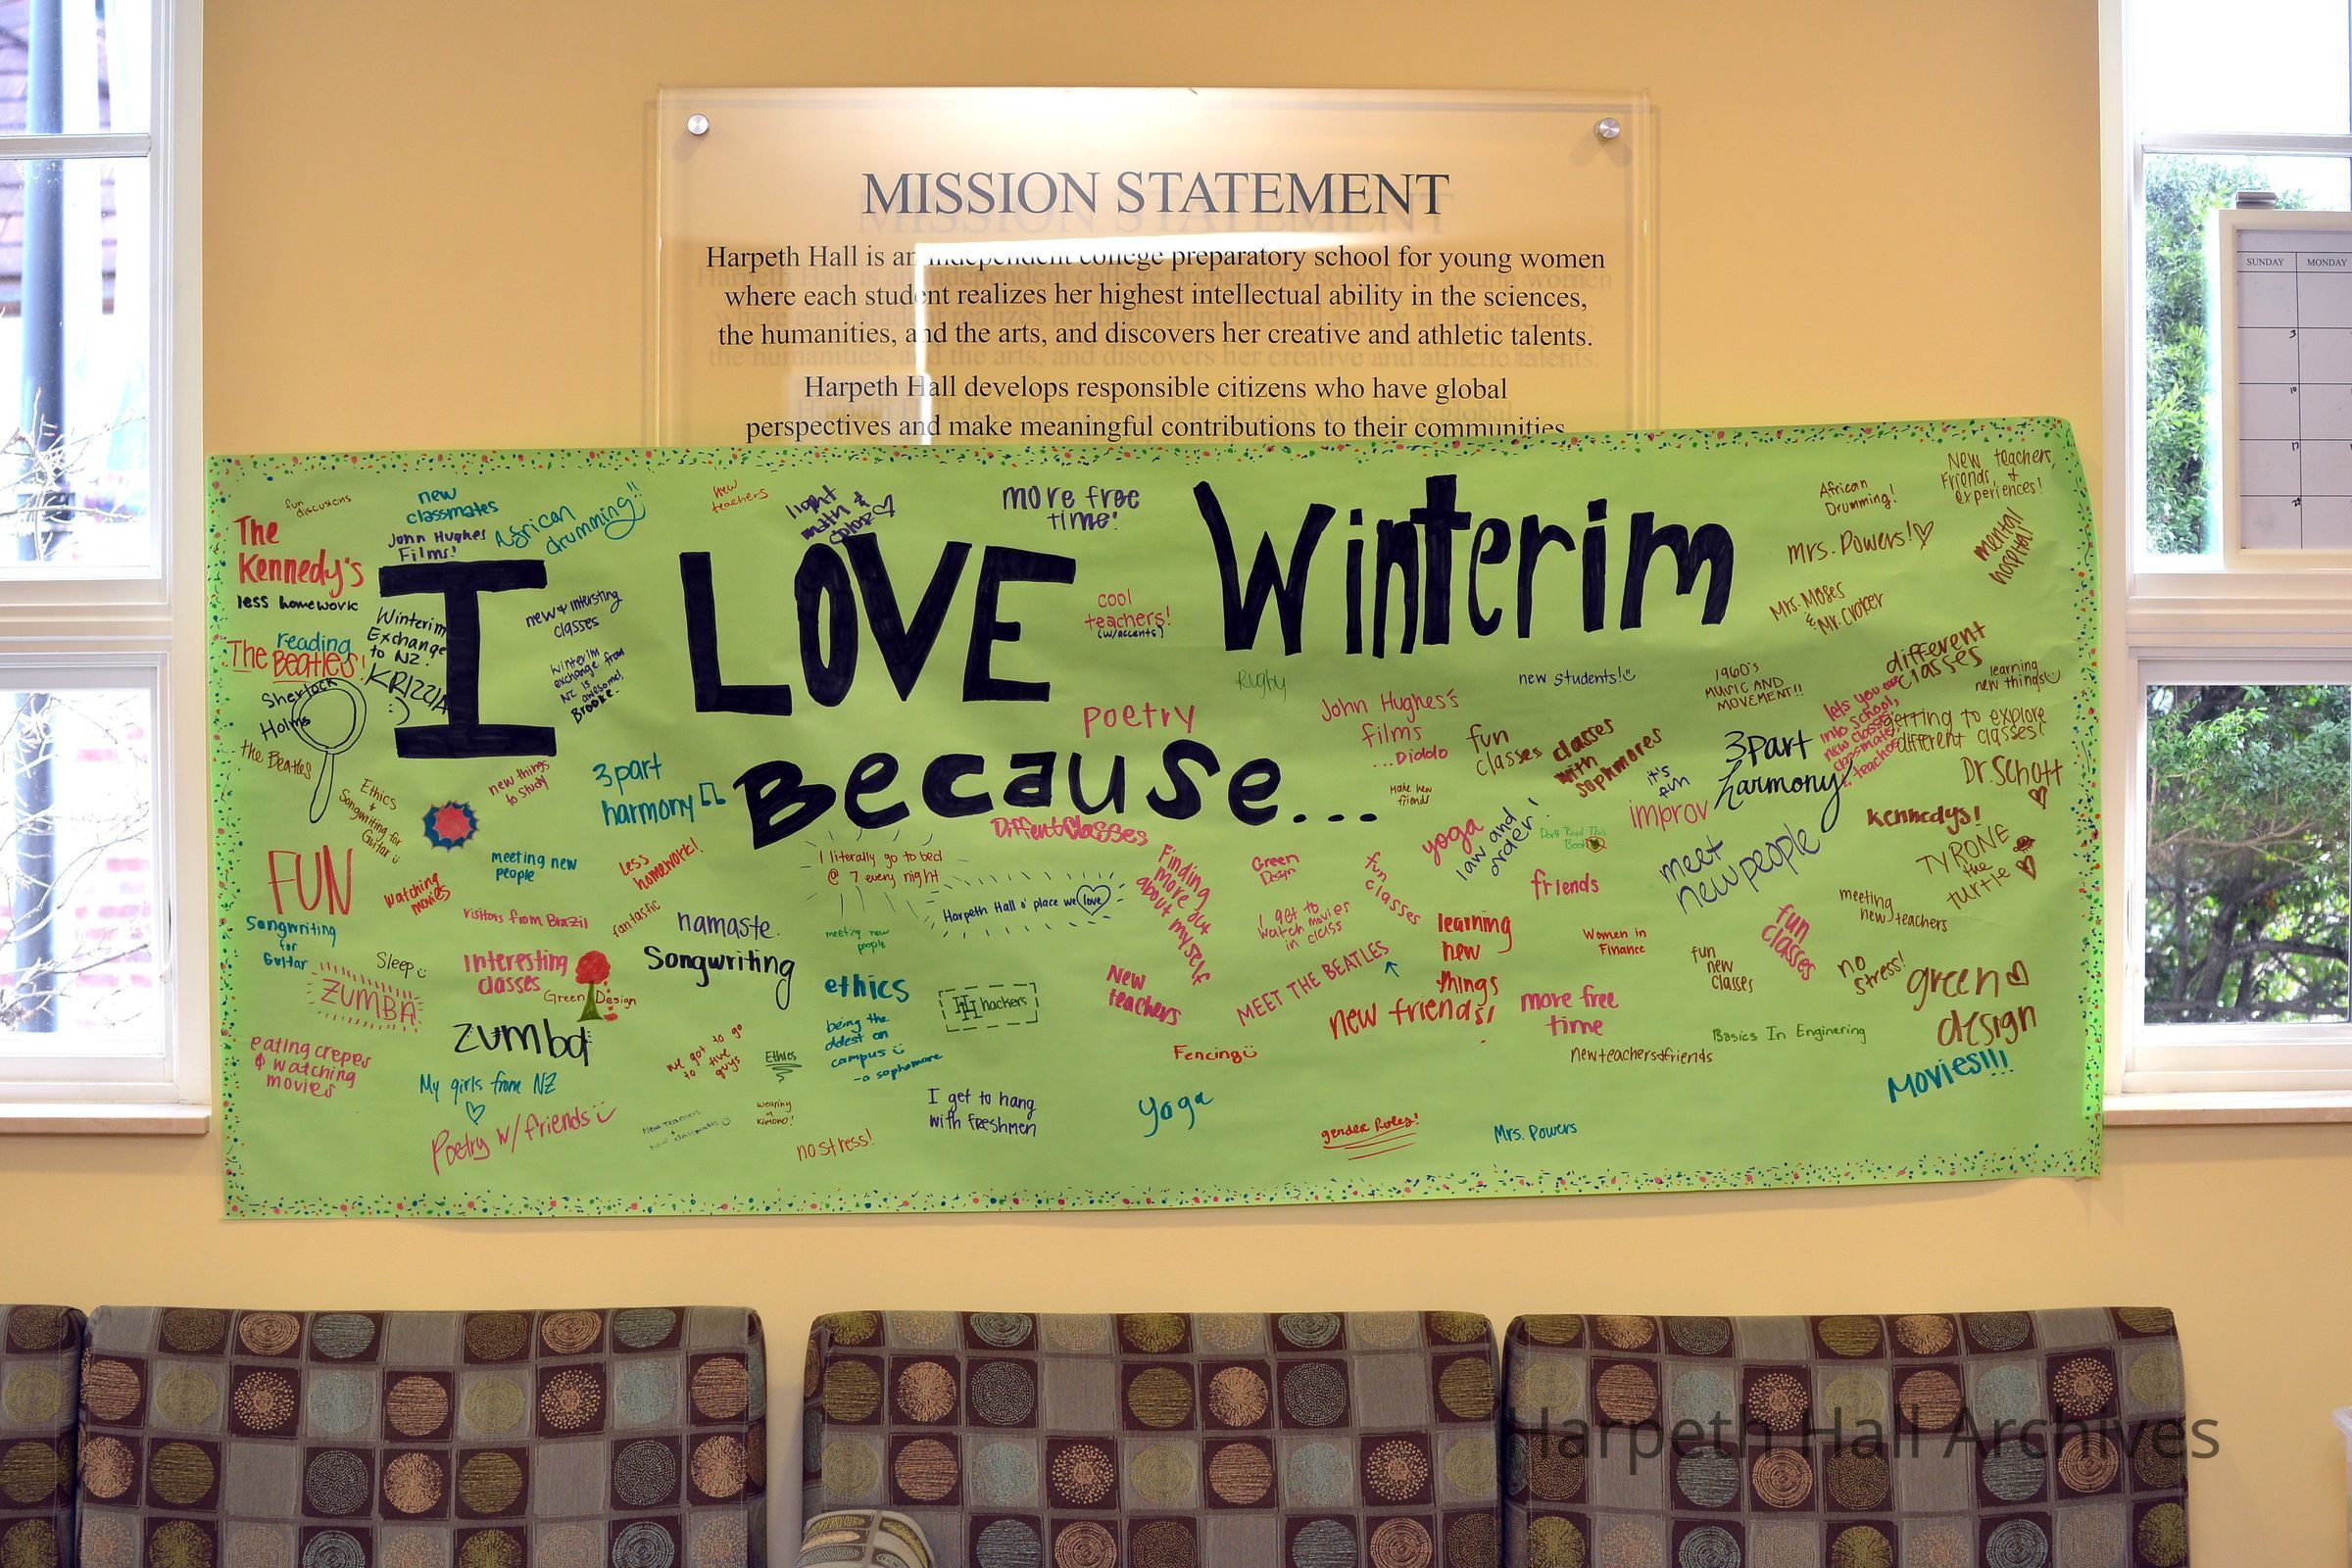 MISSION STATEMENT
Harpeth Hall is an independent college preparatory school for young women
where each student realizes her highest intellectual ability in the sciences,
the humanities, and the arts, and discovers her creative and athletic talents.
Harpeth Hall develops responsible citizens who have global
perspectives and make meaningful contributions to their communities.
SUNDAY
MONDAY
3
10
17
24
I LOVE Winterim
Because...
fun
discussions
The
Kennedy's
less homework
reading
The Beatles!
Sherlock
Holms
the Beatles
new
classmates
John Hughes
Films!
African
drumming!!
Winterim
Exchange
to NZ!
KRIZZIA
:)
new & intersting
classes
winterim
exchange from
NZ is
awesome!
Brooke.
new
teachers
light
math &
color
more free
time!
cool
teachers!
(w/accents)
Rugby
poetry
John Hughes's
films
...Diololo
new students!
African
Drumming!
New teachers,
Friends, &
experiences!
Mrs. Powers!
mental
hospital
Mrs. Moses
& Mr. Croker
different
classes
learning
new things
1960's
MUSIC AND
MOVEMENT!!
lets you ease
into school,
new classes,
classmates,
teachers
getting to explore
different classes!
Dr. Schott
Kennedys!
TYRONE
the
turtle
3 Part
harmony
it's
fun
improv
fun
classes
classes
with
sophmores
Make new
friends
yoga
law and
order!
Don't Read This
Book
meet
new people
meeting
new teachers
Ethics
&
Songwriting for
Guitar
new things
to study
3 part
harmony
FUN
watching
movies
meeting new
people
less
homework!
I literally go to bed
@ 7 every night
DiffentClasses
Harpeth Hall o' place we love
Finding
more out
about myself
Green
Design
fun
classes
friends
I get to
watch movies
in class
MEET THE BEATLES
learning
new
things
new friends!
Women in
Finance
fun
new
classes
fun
classes
no
stress!
green
design
Movies!!!
Songwriting
for
Guitar
Sleep
ZUMBA
visitors from Brazil
fantastic
namaste.
Songwriting
interesting
classes
Green Design
zumba
meeting new
people
ethics
being the
oldest on
campus
- a sophomore
HH hackers
New
teachers
more free
time
Basics In Enginering
newteachers&friends
Fencing
eating crepes
& watching
movies
My girls from NZ
Poetry w/ friends
we got to go
to five
guys
Ethics
wearing
a
kimono!
New Teachers
+
new classmates
no stress!
I get to hang
with freshmen
yoga
gender Roles!
Mrs. Powers
Harpeth Hall Archives